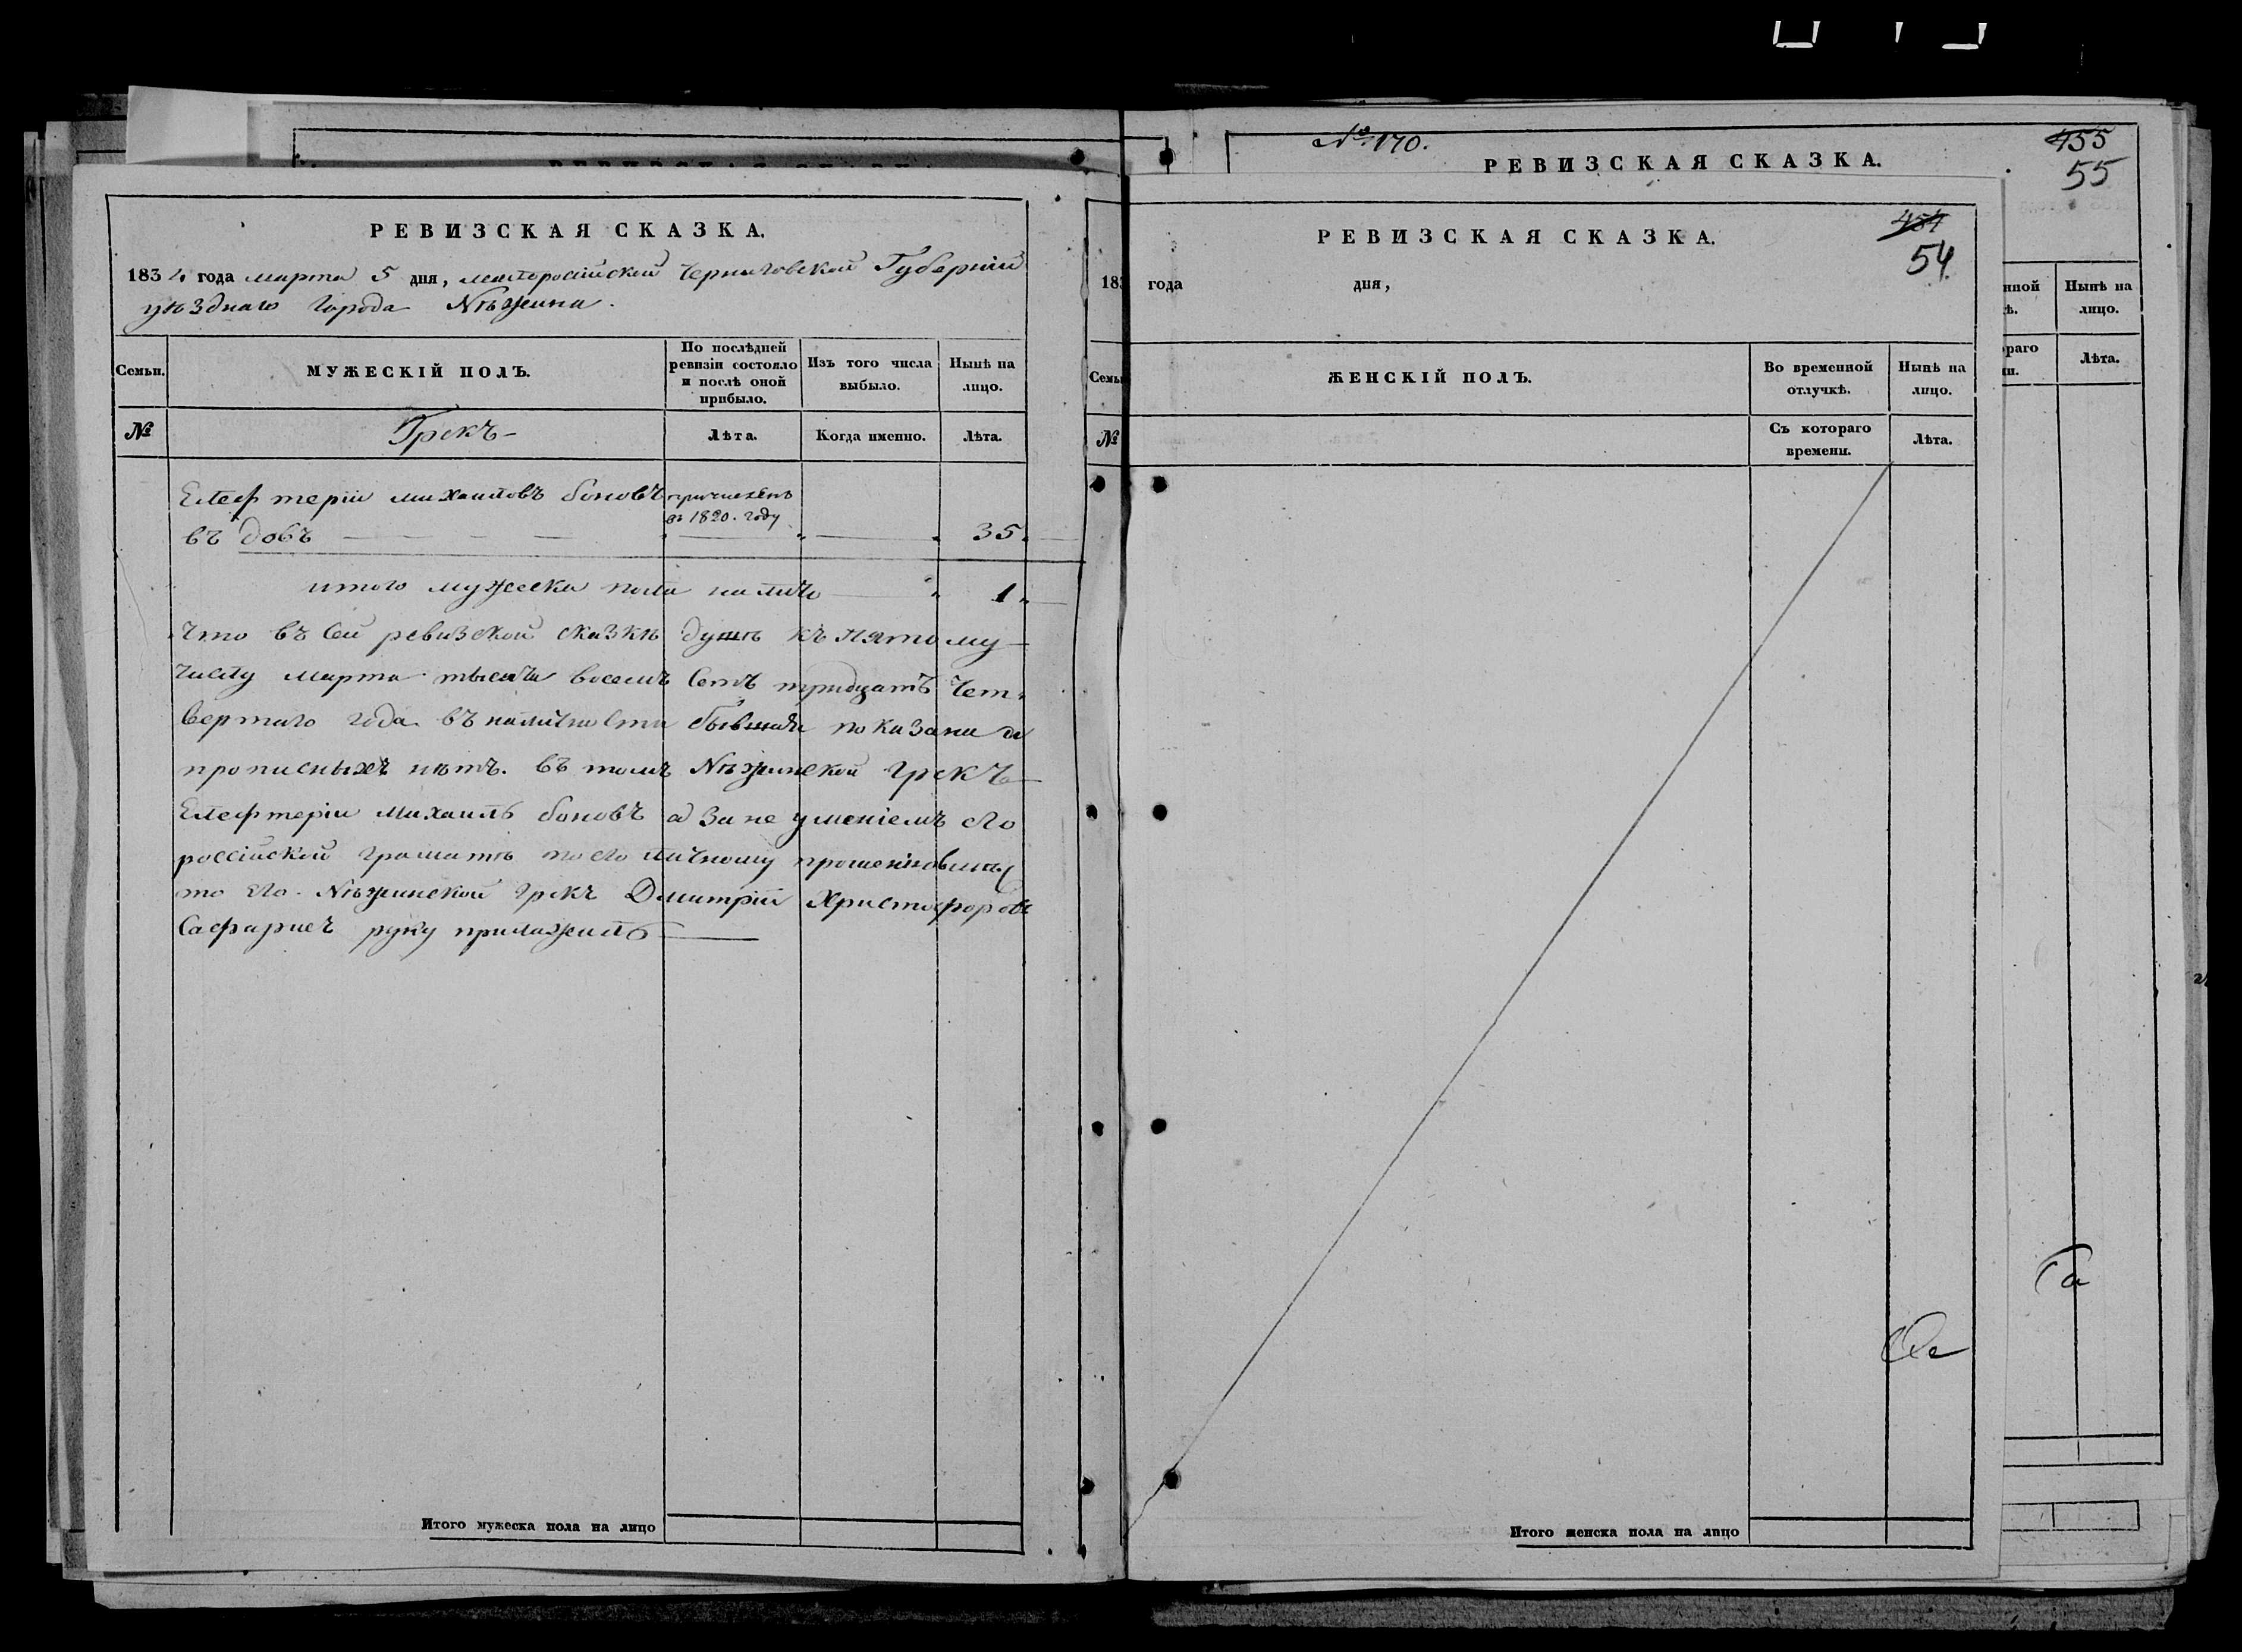 РЕВИЗСКАЯ СКАЗКА.
1834 года марта 5 дня, малоросійской Черниговской Губерніи
уѣзднаго города Нѣжина.
Семьи.
МУЖЕСКІЙ ПОЛЪ.
По послѣдней ревизіи состояло и послѣ оной прибыло.
Изъ того числа выбыло.
Нынѣ на лицо.
№
Грекъ
Лѣта.
Когда именно.
Лѣта.
Елефтерій михаиловъ боновъ причисленъ
въ 1820. году
въ довъ 35.
итого мужеска пола на лицо 1
Что въ сей ревизской сказкѣ душъ къ пятому
числу марта тысяча восемъ сотъ тридцатъ чет
вертаго года въ наличности бывшая показана
прописныхъ нѣтъ. въ томъ Нѣжинской грекъ
Елефтерій Михаилъ боновъ а за не уменіемъ его
россійской грамать по его личному прошенію
то его Нѣжинской грекъ Дмитрій Христофоровъ
руку приложилъ
Итого мужеска пола на лицо
№ 170.
РЕВИЗСКАЯ СКАЗКА.
455
55
РЕВИЗСКАЯ СКАЗКА.
454
54.
183 года дня,
Семьи
ЖЕНСКІЙ ПОЛЪ.
Во временной отлучкѣ.
Нынѣ на лицо.
№
Съ котораго времени.
Лѣта.
Итого женска пола на лицо
нной
ѣ.
Нынѣ на лицо.
раго
ни.
Лѣта.